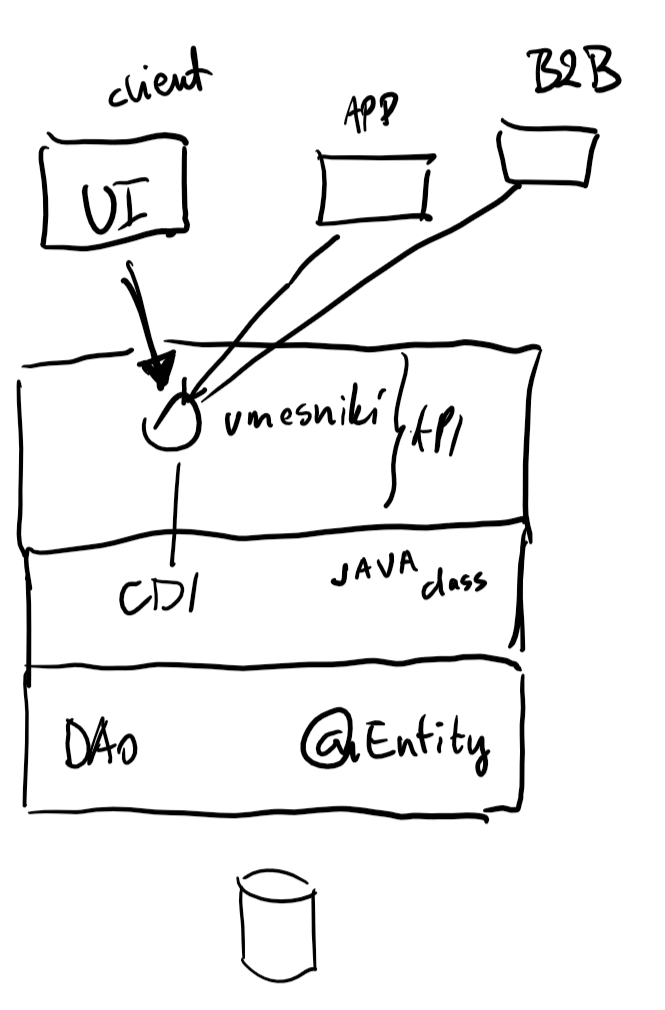 client
APP
B2B
UI
vmesniki API
CDI JAVA class
DAO @Entity